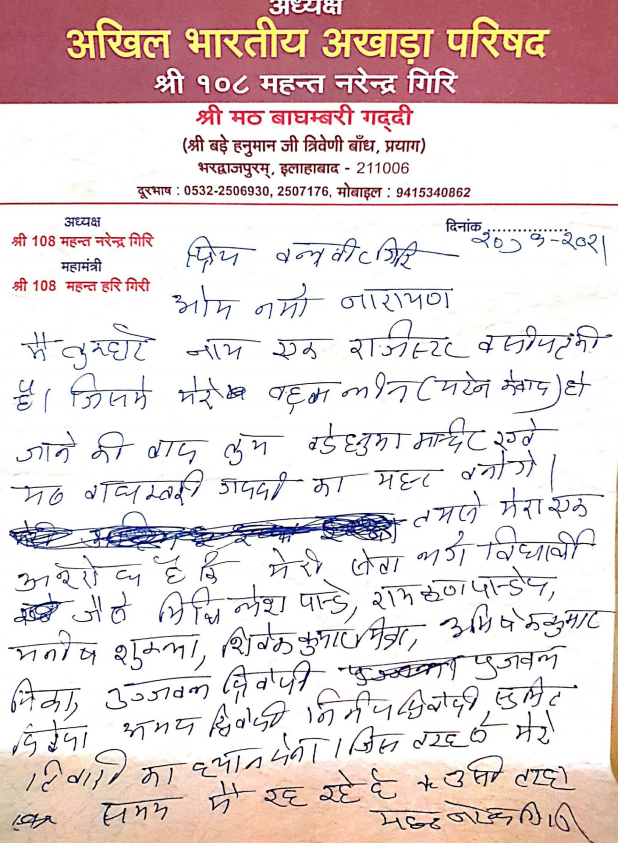 अध्यक्ष
अखिल भारतीय अखाड़ा परिषद
श्री १०८ महन्त नरेन्द्र गिरि
श्री मठ बाघम्बरी गद्दी
(श्री बड़े हनुमान जी त्रिवेणी बाँध, प्रयाग)
भरद्वाजपुरम्, इलाहाबाद - 211006
दूरभाष : 0532-2506930, 2507176, मोबाइल : 9415340862
अध्यक्ष
श्री 108 महन्त नरेन्द्र गिरि
महामंत्री
श्री 108 महन्त हरि गिरी
दिनांक..................
प्रिय बलवीर गिरि
ओम नमो नारायण
मै तुम्हारे नाम एक राजिस्टर वसीयत की
है। जिसमे मेरे (मरने के बाद) हो
जाने की बाद तुम बडे हनुमा मन्दिर एवं
मठ बाघम्बरी गददी का महन्त बनोगे।
तुमसे मेरा एक
अनुरोध है कि मेरी सेवा मे विधार्थी
जैसे मिथिलेश पान्डे, रामकृष्ण पान्डेय,
मनीष शुक्ला, शिवेक कुमार मिश्रा, अभिषेक कुमार
मिश्रा, उज्जवल द्विवेदी प्रज्जवल
द्विवेदी अभय द्विवेदी निर्भय द्विवेदी सुमित
तिवारी का ध्यान देना। जिस तरह से मेरे
समय मे रह रहे है उसी तरह
महन्त नरेन्द्र गिरि